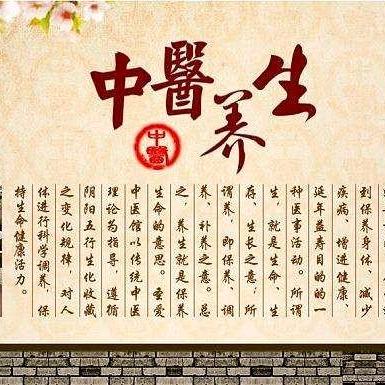 中醫养生
中醫
到保养身体、减少
疾病、增进健康、
延年益寿目的的一
种医事活动。所谓
生，就是生命、生
存、生长之意；所
谓养，即保养、调
养、补养之意。总
之，养生就是保养
生命的意思。圣爱
中医馆以传统中医
理论为指导，遵循
阴阳五行生化收藏
之变化规律，对人
体进行科学调养，保
持生命健康活力。